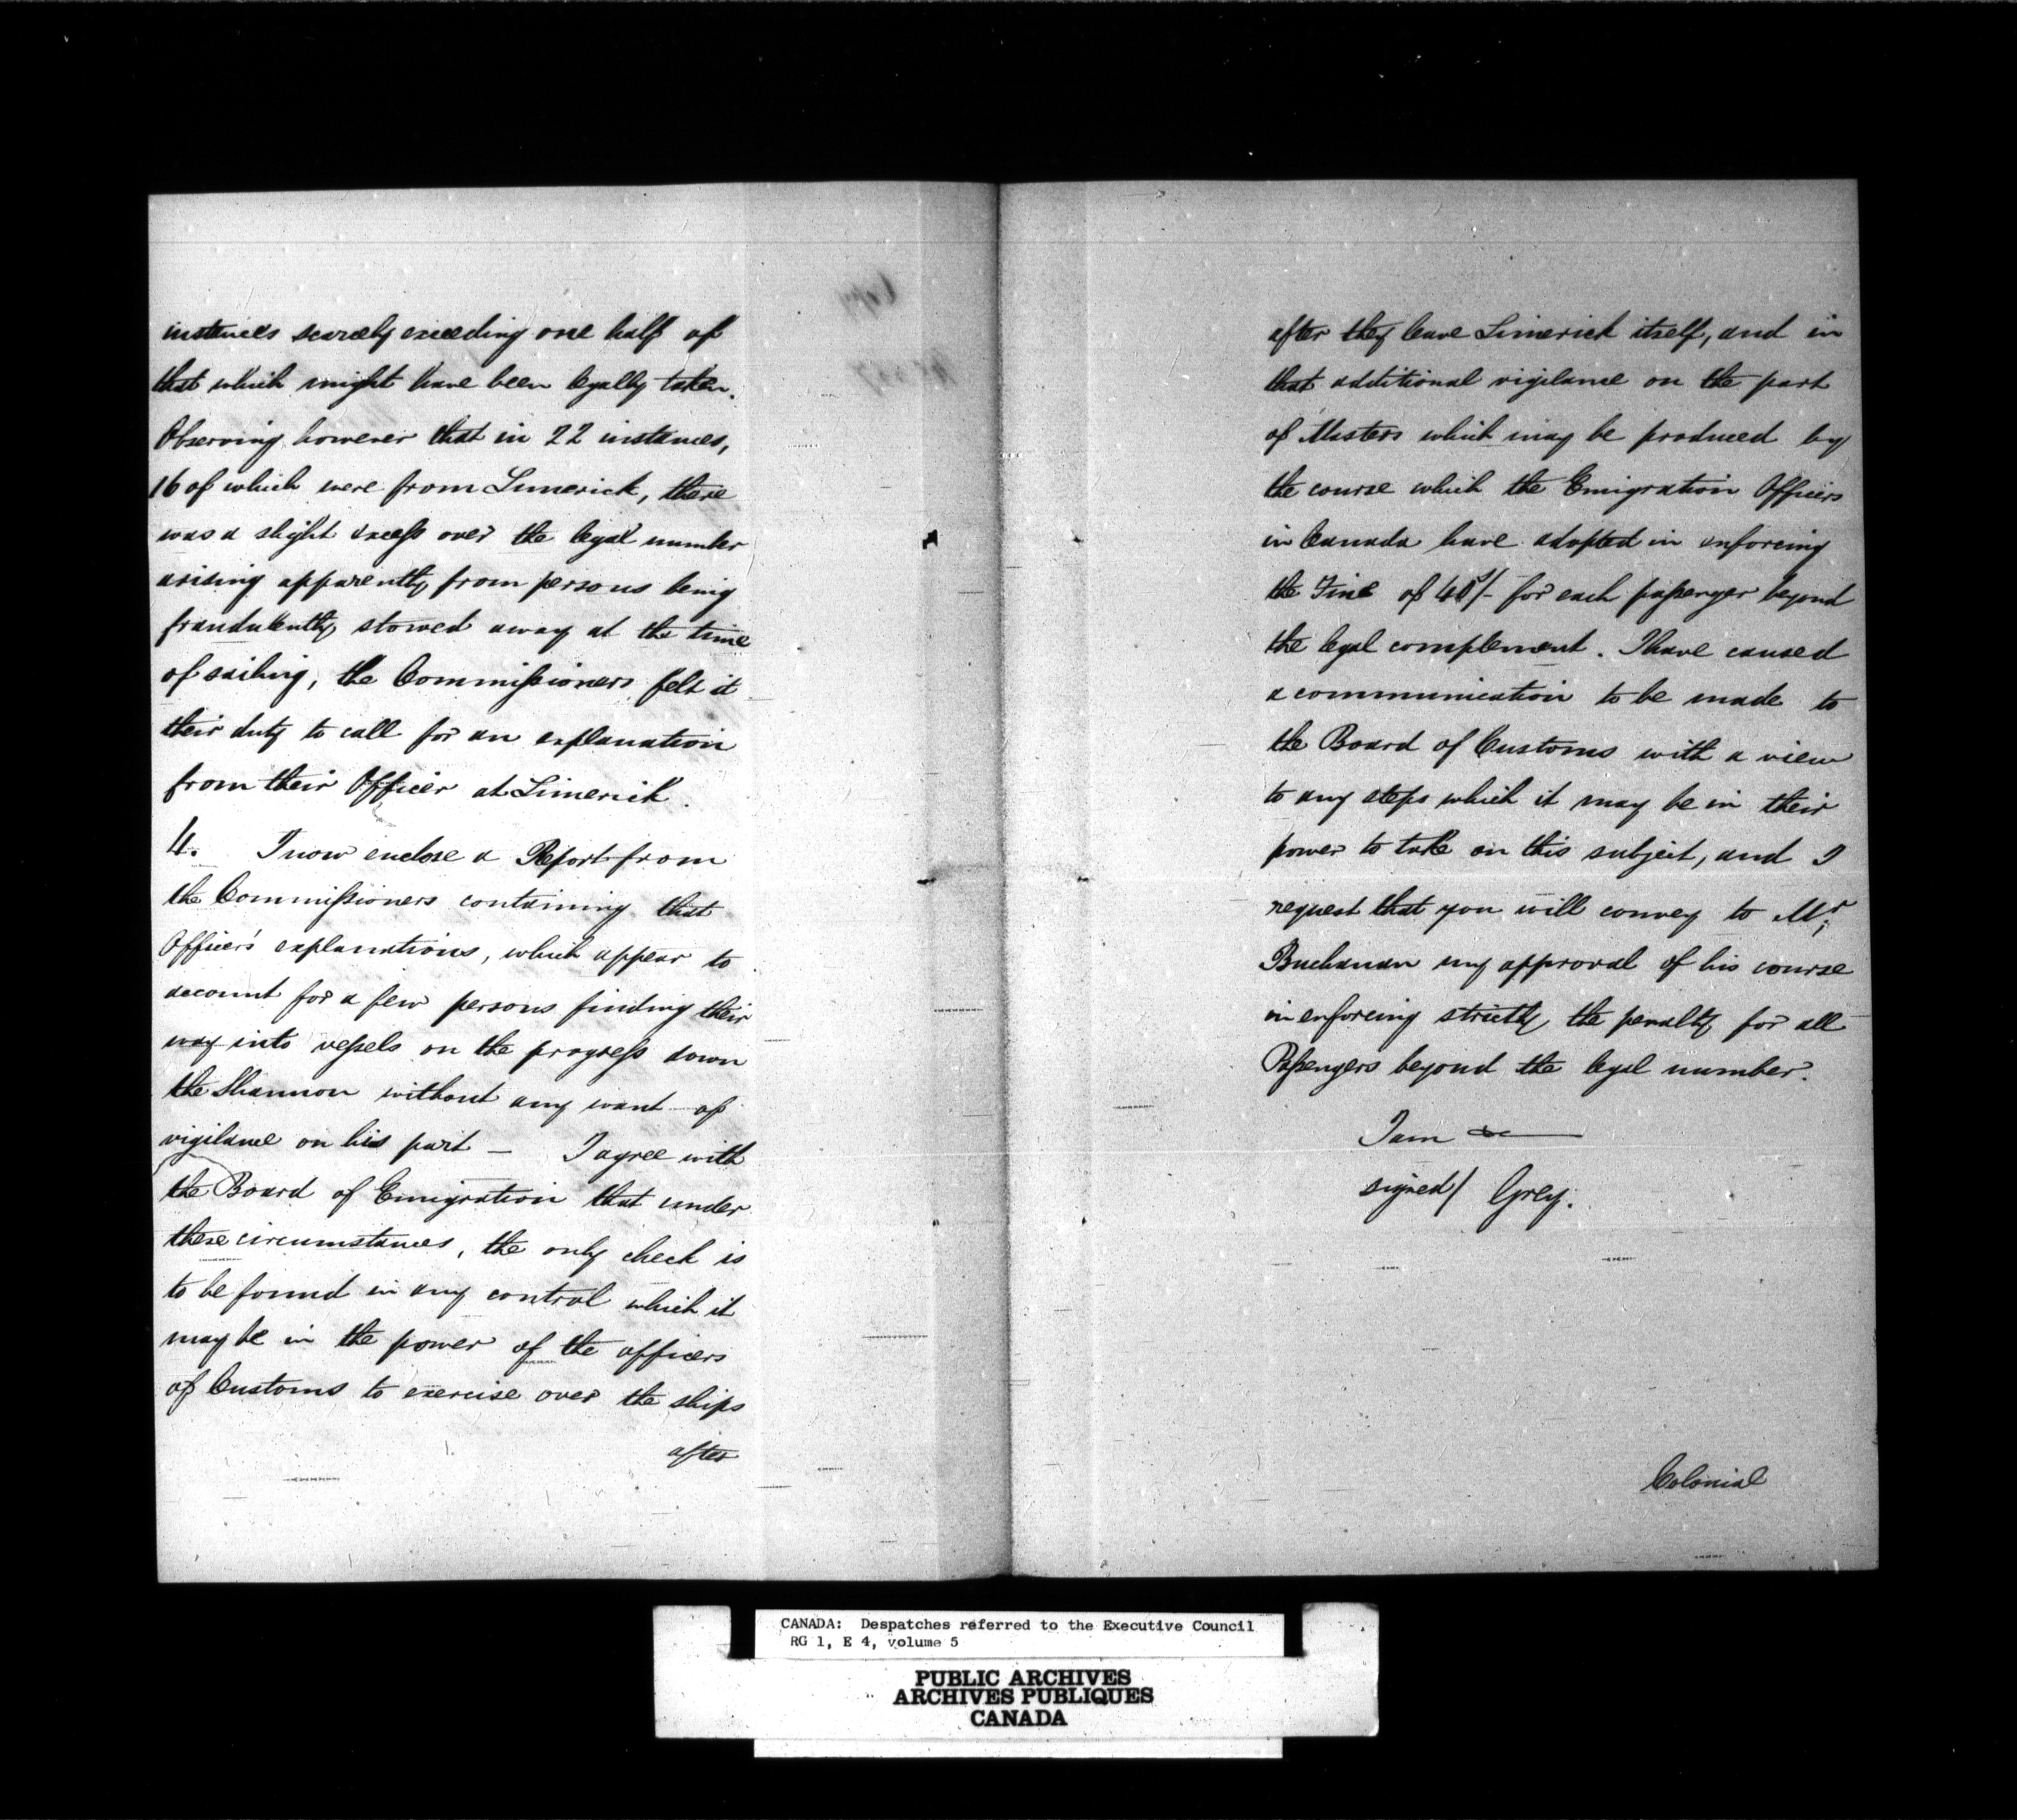 instances scarcely exceeding one half of
that which might have been legally taken.
Observing however that in 22 instances,
16 of which were from Limerick, there
was a slight excess over the legal number
arising apparently from persons being
fraudulently stowed away at the time
of sailing, the Commissioners felt it
their duty to call for an explanation
from their Officer at Limerick.
4. I now enclose a Report from
the Commissioners containing that
Officer's explanations, which appear to
account for a few persons finding their
way into vessels on the progress down
the Shannon without any want of
vigilance on his part — I agree with
the Board of Emigration that under
these circumstances, the only check is
to be found in any control which it
may be in the power of the officers
of Customs to exercise over the ships
after
after they leave Limerick itself, and in
that additional vigilance on the part
of Masters which may be produced by
the course which the Emigration Officers
in Canada have adopted in enforcing
the Fine of 40s/- for each passenger beyond
the legal complement. I have caused
a communication to be made to
the Board of Customs with a view
to any steps which it may be in their
power to take on this subject, and I
request that you will convey to Mr
Buchanan my approval of his course
in enforcing strictly the penalty for all
Passengers beyond the legal number.
I am &c
signed/ Grey.
Colonial
CANADA: Despatches referred to the Executive Council
RG 1, E 4, volume 5
PUBLIC ARCHIVES
ARCHIVES PUBLIQUES
CANADA